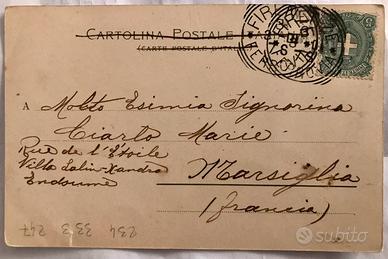 CARTOLINA POSTALE ITALIANA
(CARTE POSTALE D'ITALIE)
FIRENZE
A Molto Esimia Signorina
Ciarla Marie
Rue de l'Étoile
Villa
Endoume
Marsiglia
(francia)
234 33.3 247
subito